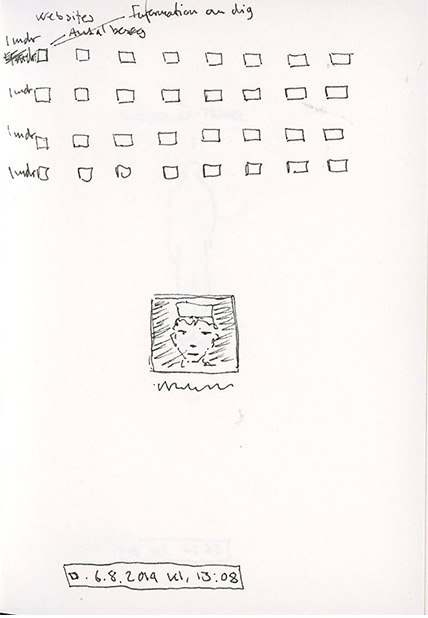 websites Information om dig
Antal besøg
1 mdr
1 mdr
1 mdr
1 mdr
6.8.2019 kl, 13:08